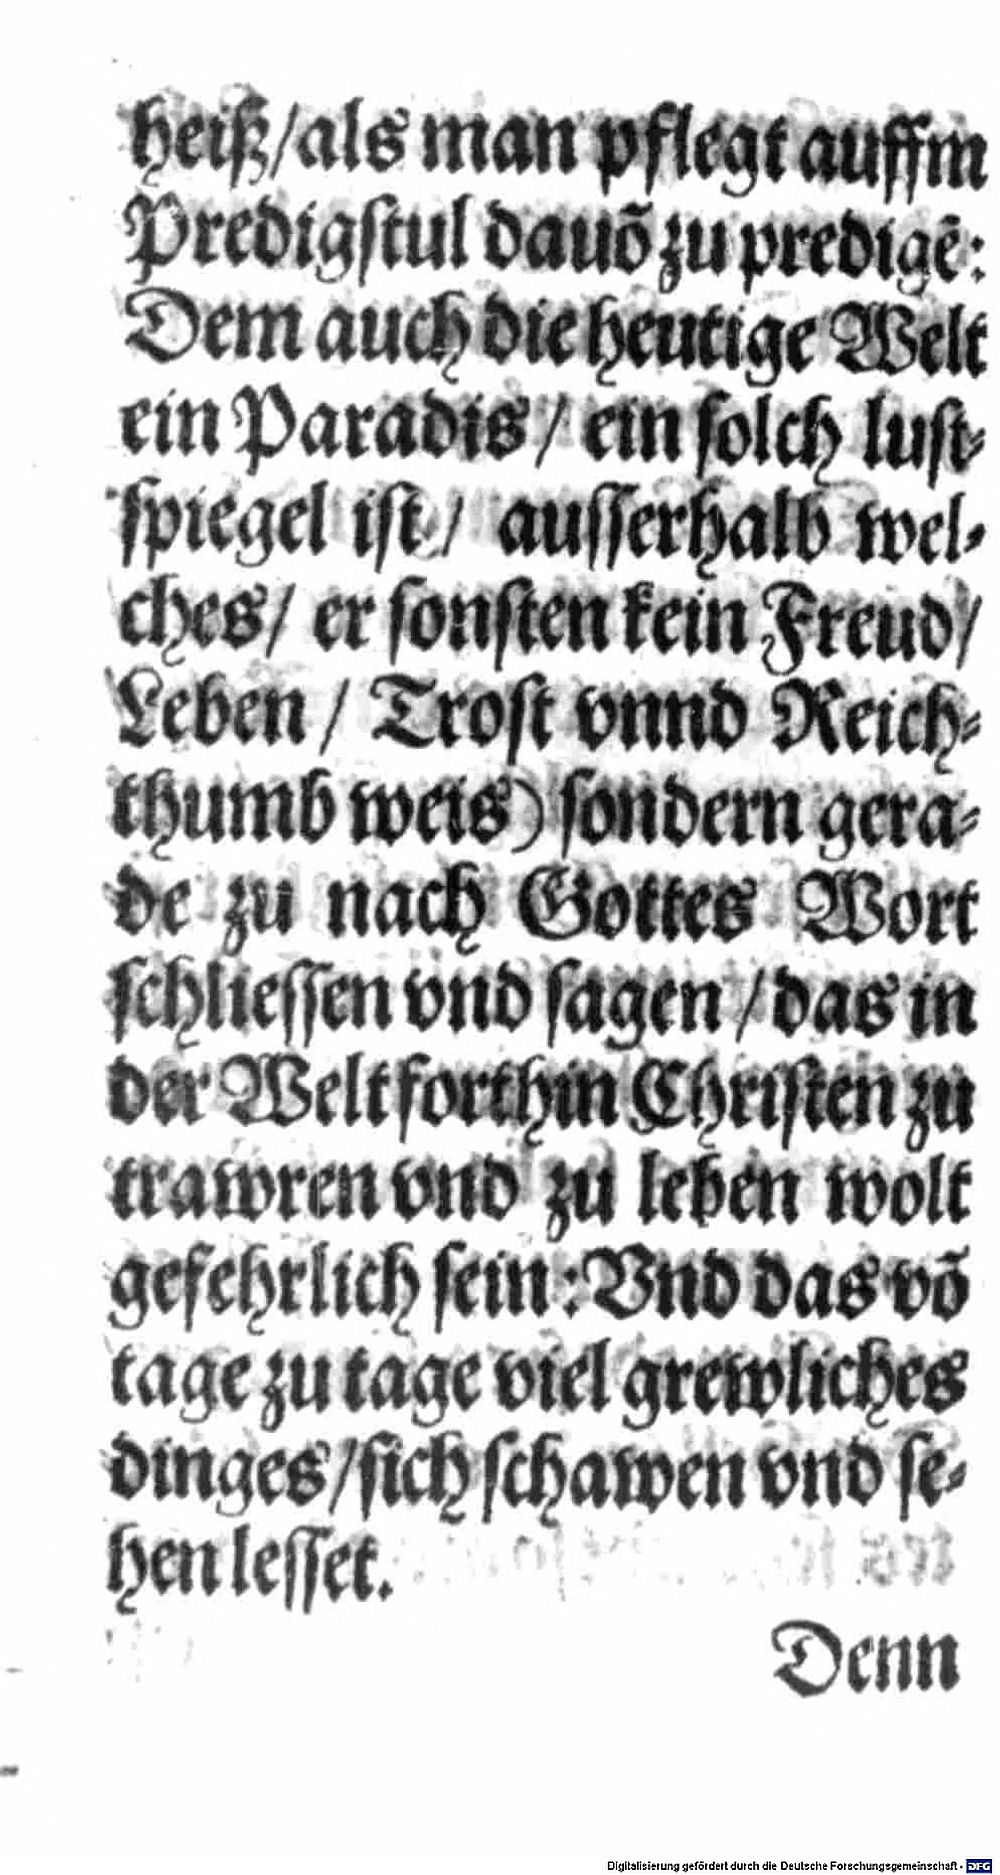 heiß/als man pflegt auffm
Predigſtul dauõ zu predigẽ:
Dem auch die heutige Welt
ein Paradis/ ein ſolch luſt-
ſpiegel iſt/ auſſerhalb wel-
ches/ er ſonſten kein Freud/
Leben/ Troſt vnnd Reich-
thumb weis) ſondern gera-
de zu nach Gottes Wort
ſchlieſſen vnd ſagen/das in
der Welt forthin Chriſten zu
trawren vnd zu leben wolt
gefehrlich ſein: Vnd das võ
tage zu tage viel grewliches
dinges/ſich ſchawen vnd ſe-
hen leſſet.
Denn
Digitalisierung gefördert durch die Deutsche Forschungsgemeinschaft - DFG